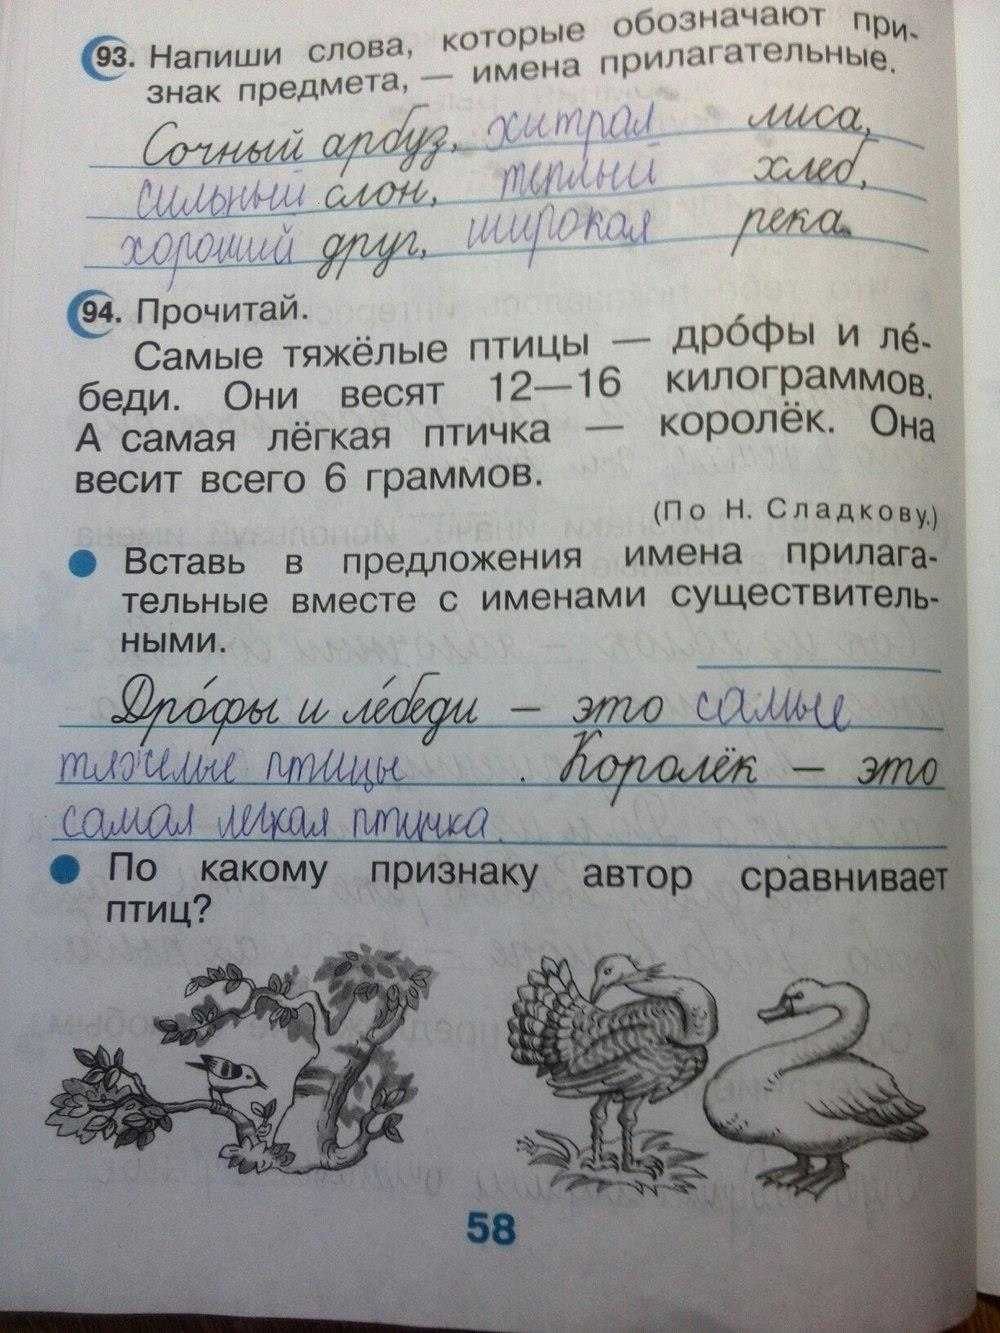 93. Напиши слова, которые обозначают при-
знак предмета, — имена прилагательные.
Сочный арбуз, хитрая лиса,
сильный слон, теплый хлеб,
хороший друг, широкая река.
94. Прочитай.
Самые тяжёлые птицы — дро́фы и ле́-
беди. Они весят 12—16 килограммов.
А самая лёгкая птичка — королёк. Она
весит всего 6 граммов.
(По Н. Сладкову.)
Вставь в предложения имена прилага-
тельные вместе с именами существитель-
ными.
Дро́фы и ле́беди — это самые
тяжелые птицы. Королёк — это
самая легкая птичка.
По какому признаку автор сравнивает
птиц?
58